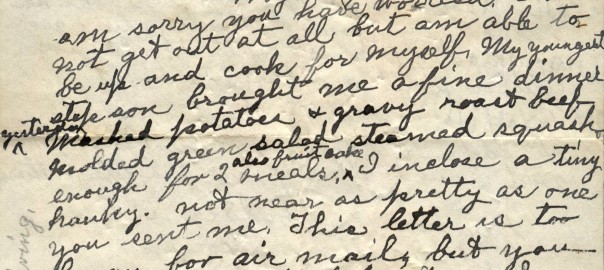 am sorry you have worried.
not get out at all but am able to
be up and cook for myself. My youngest
step son brought me a fine dinner
yesterday
Mashed potatoes & gravy roast beef
molded green salad steamed squash,
also fruit cake
enough for 2 meals, I inclose a tiny
hanky. not near as pretty as one
you sent me. This letter is too
for air mail, but you